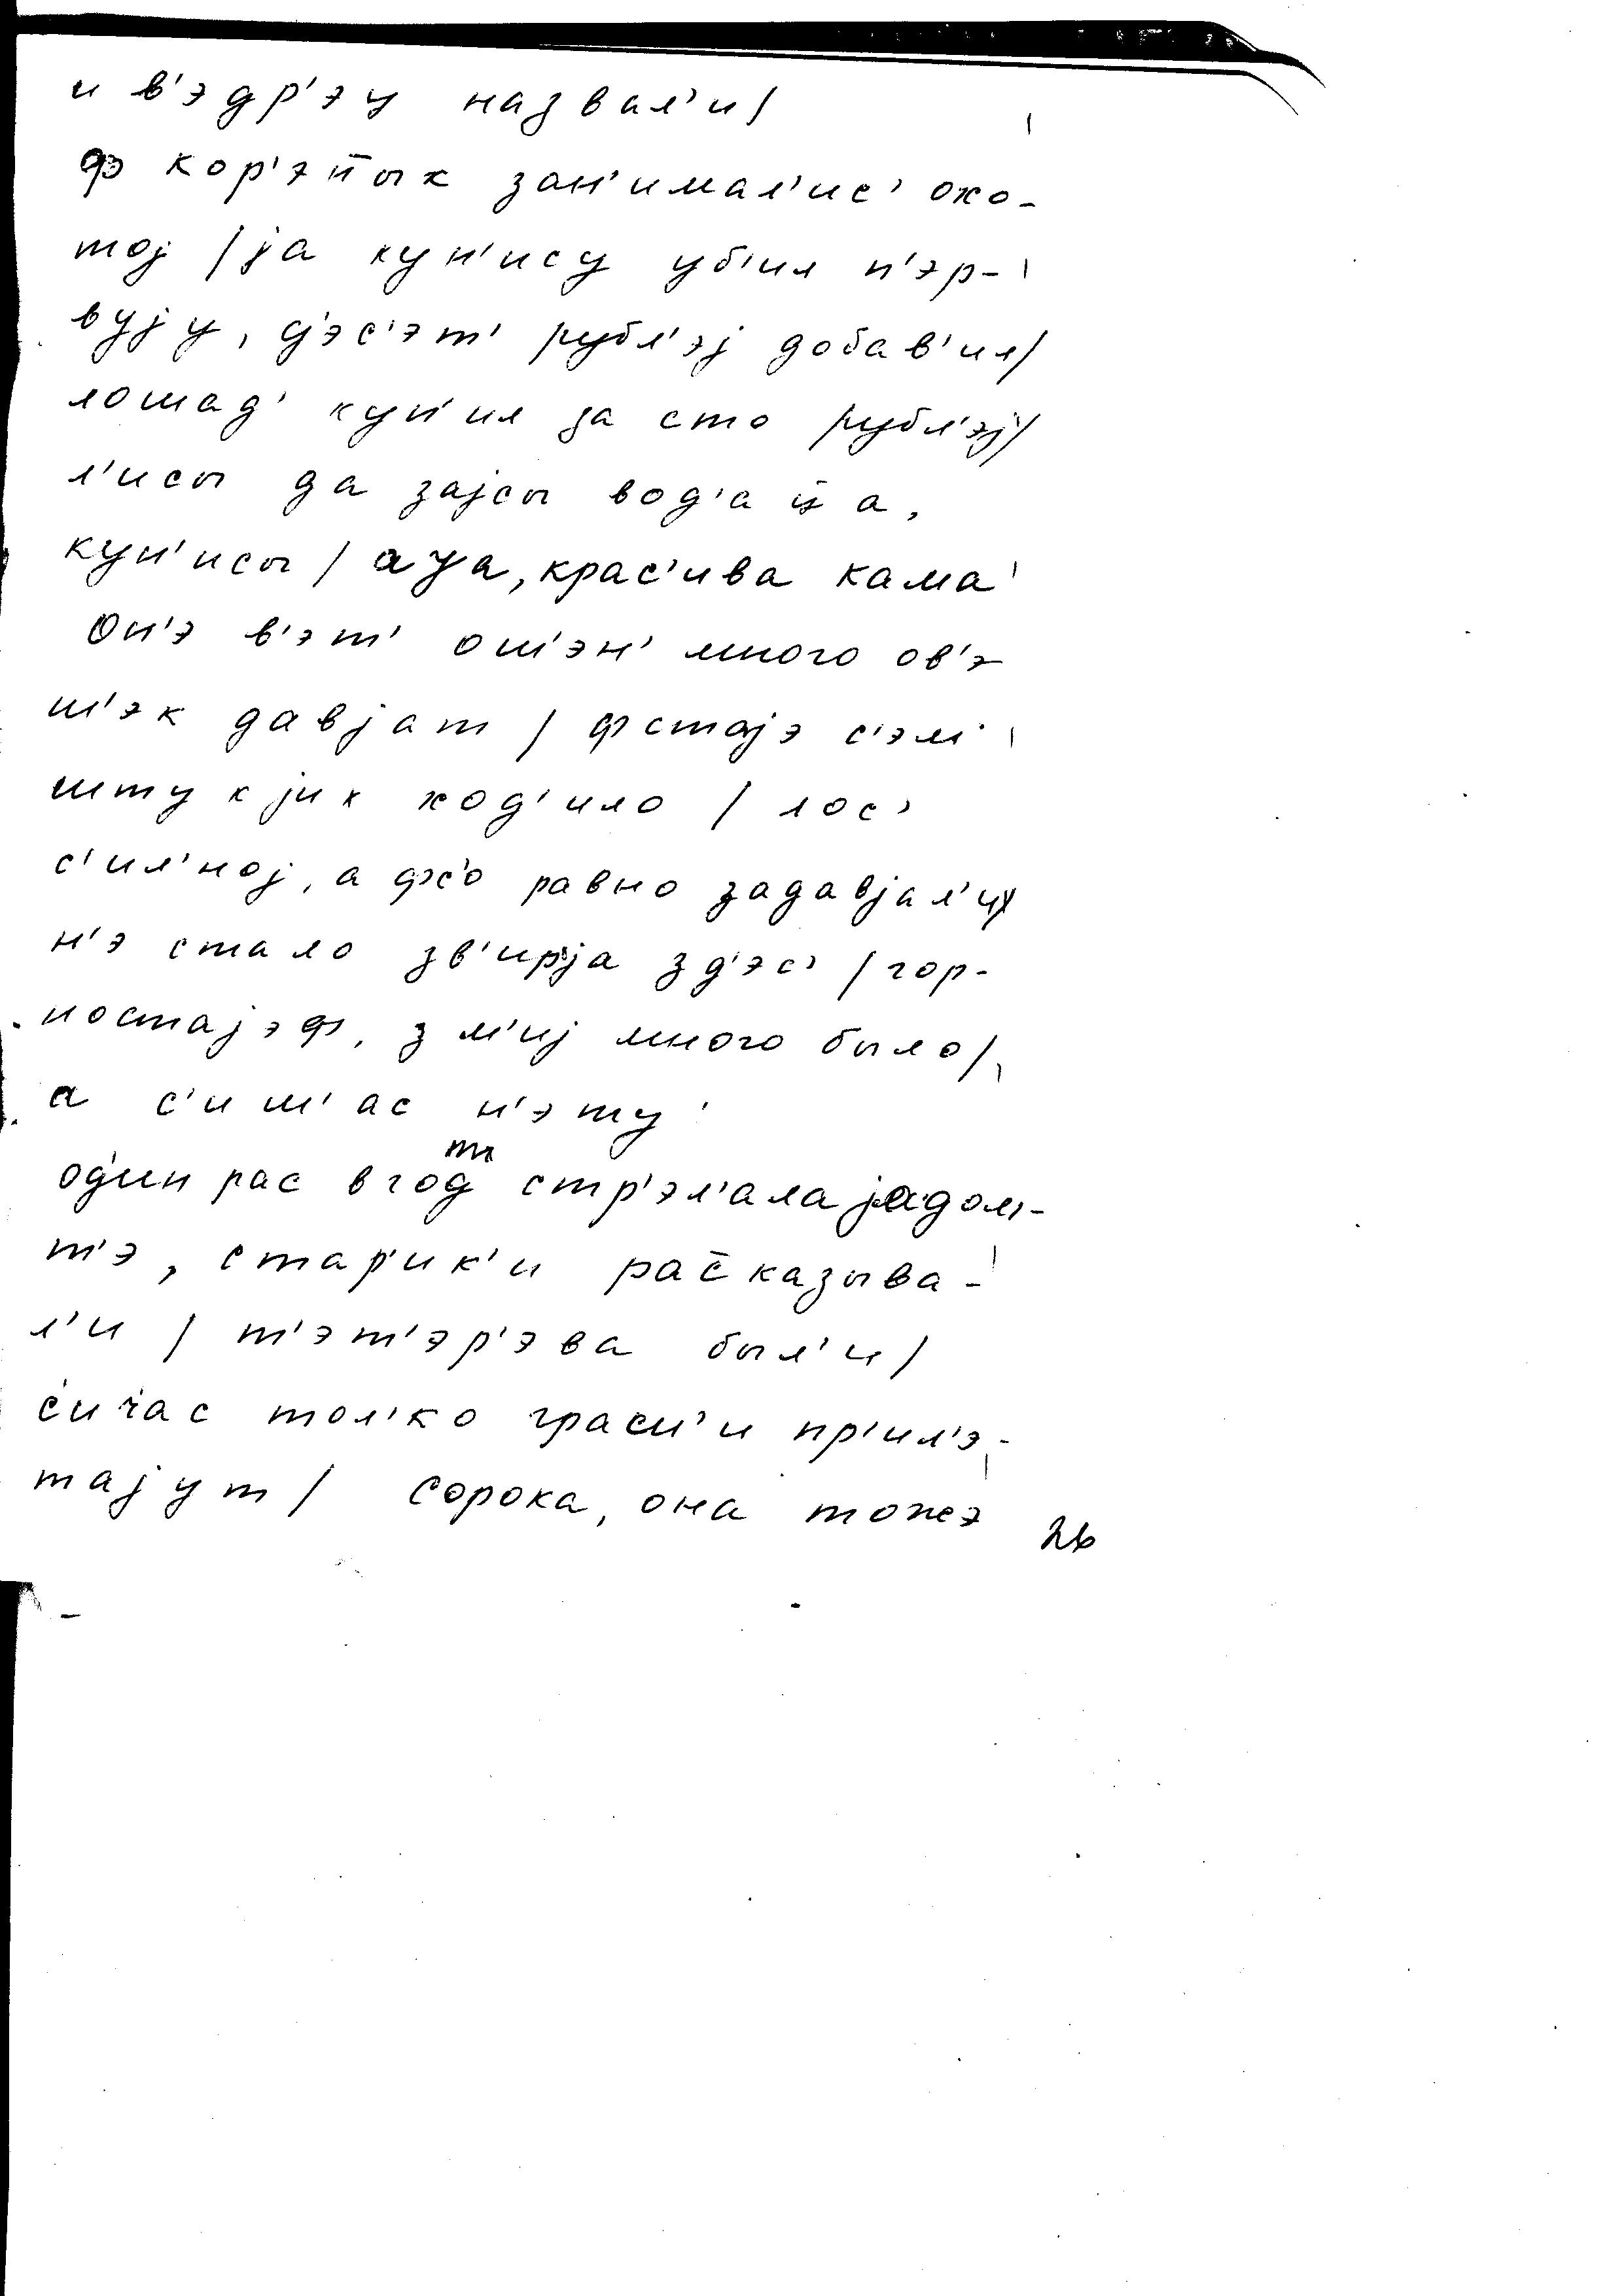 и в'эдр'эу назвал'и/
ф кор'эп̄ых зан'имал'ис' охо-
тој /ја кун'ису уб'ил п'эр-
вују, д'эс'эт' рубл'эј добав'ил/
лошад' куп'ил за сто рубл'эј/
л'исы да зајсы вод'а
кун'исы / ауа, крас'ива кама
он'э в'эт' ош'эн' много ов'э
ш'эк давјат / фстајэ с'эм'
штук јих ход'ило / лос'
с'ил'ној, а фс'о равно задавјал'и/
н'э стало зв'ирја зд'эс' / гор-
ностајэф, зм'иј много было/
а с'иш'ас н'эту
од'ин рас в год т стр'эл'ала јадом'-
т'э, стар'ик'и рас̄казыва-
л'и / т'эт'эр'эва был'и/
с'ич'ас тол'ко грасш'и пр'ил'э-
тајут / сорока, она тожэ
26